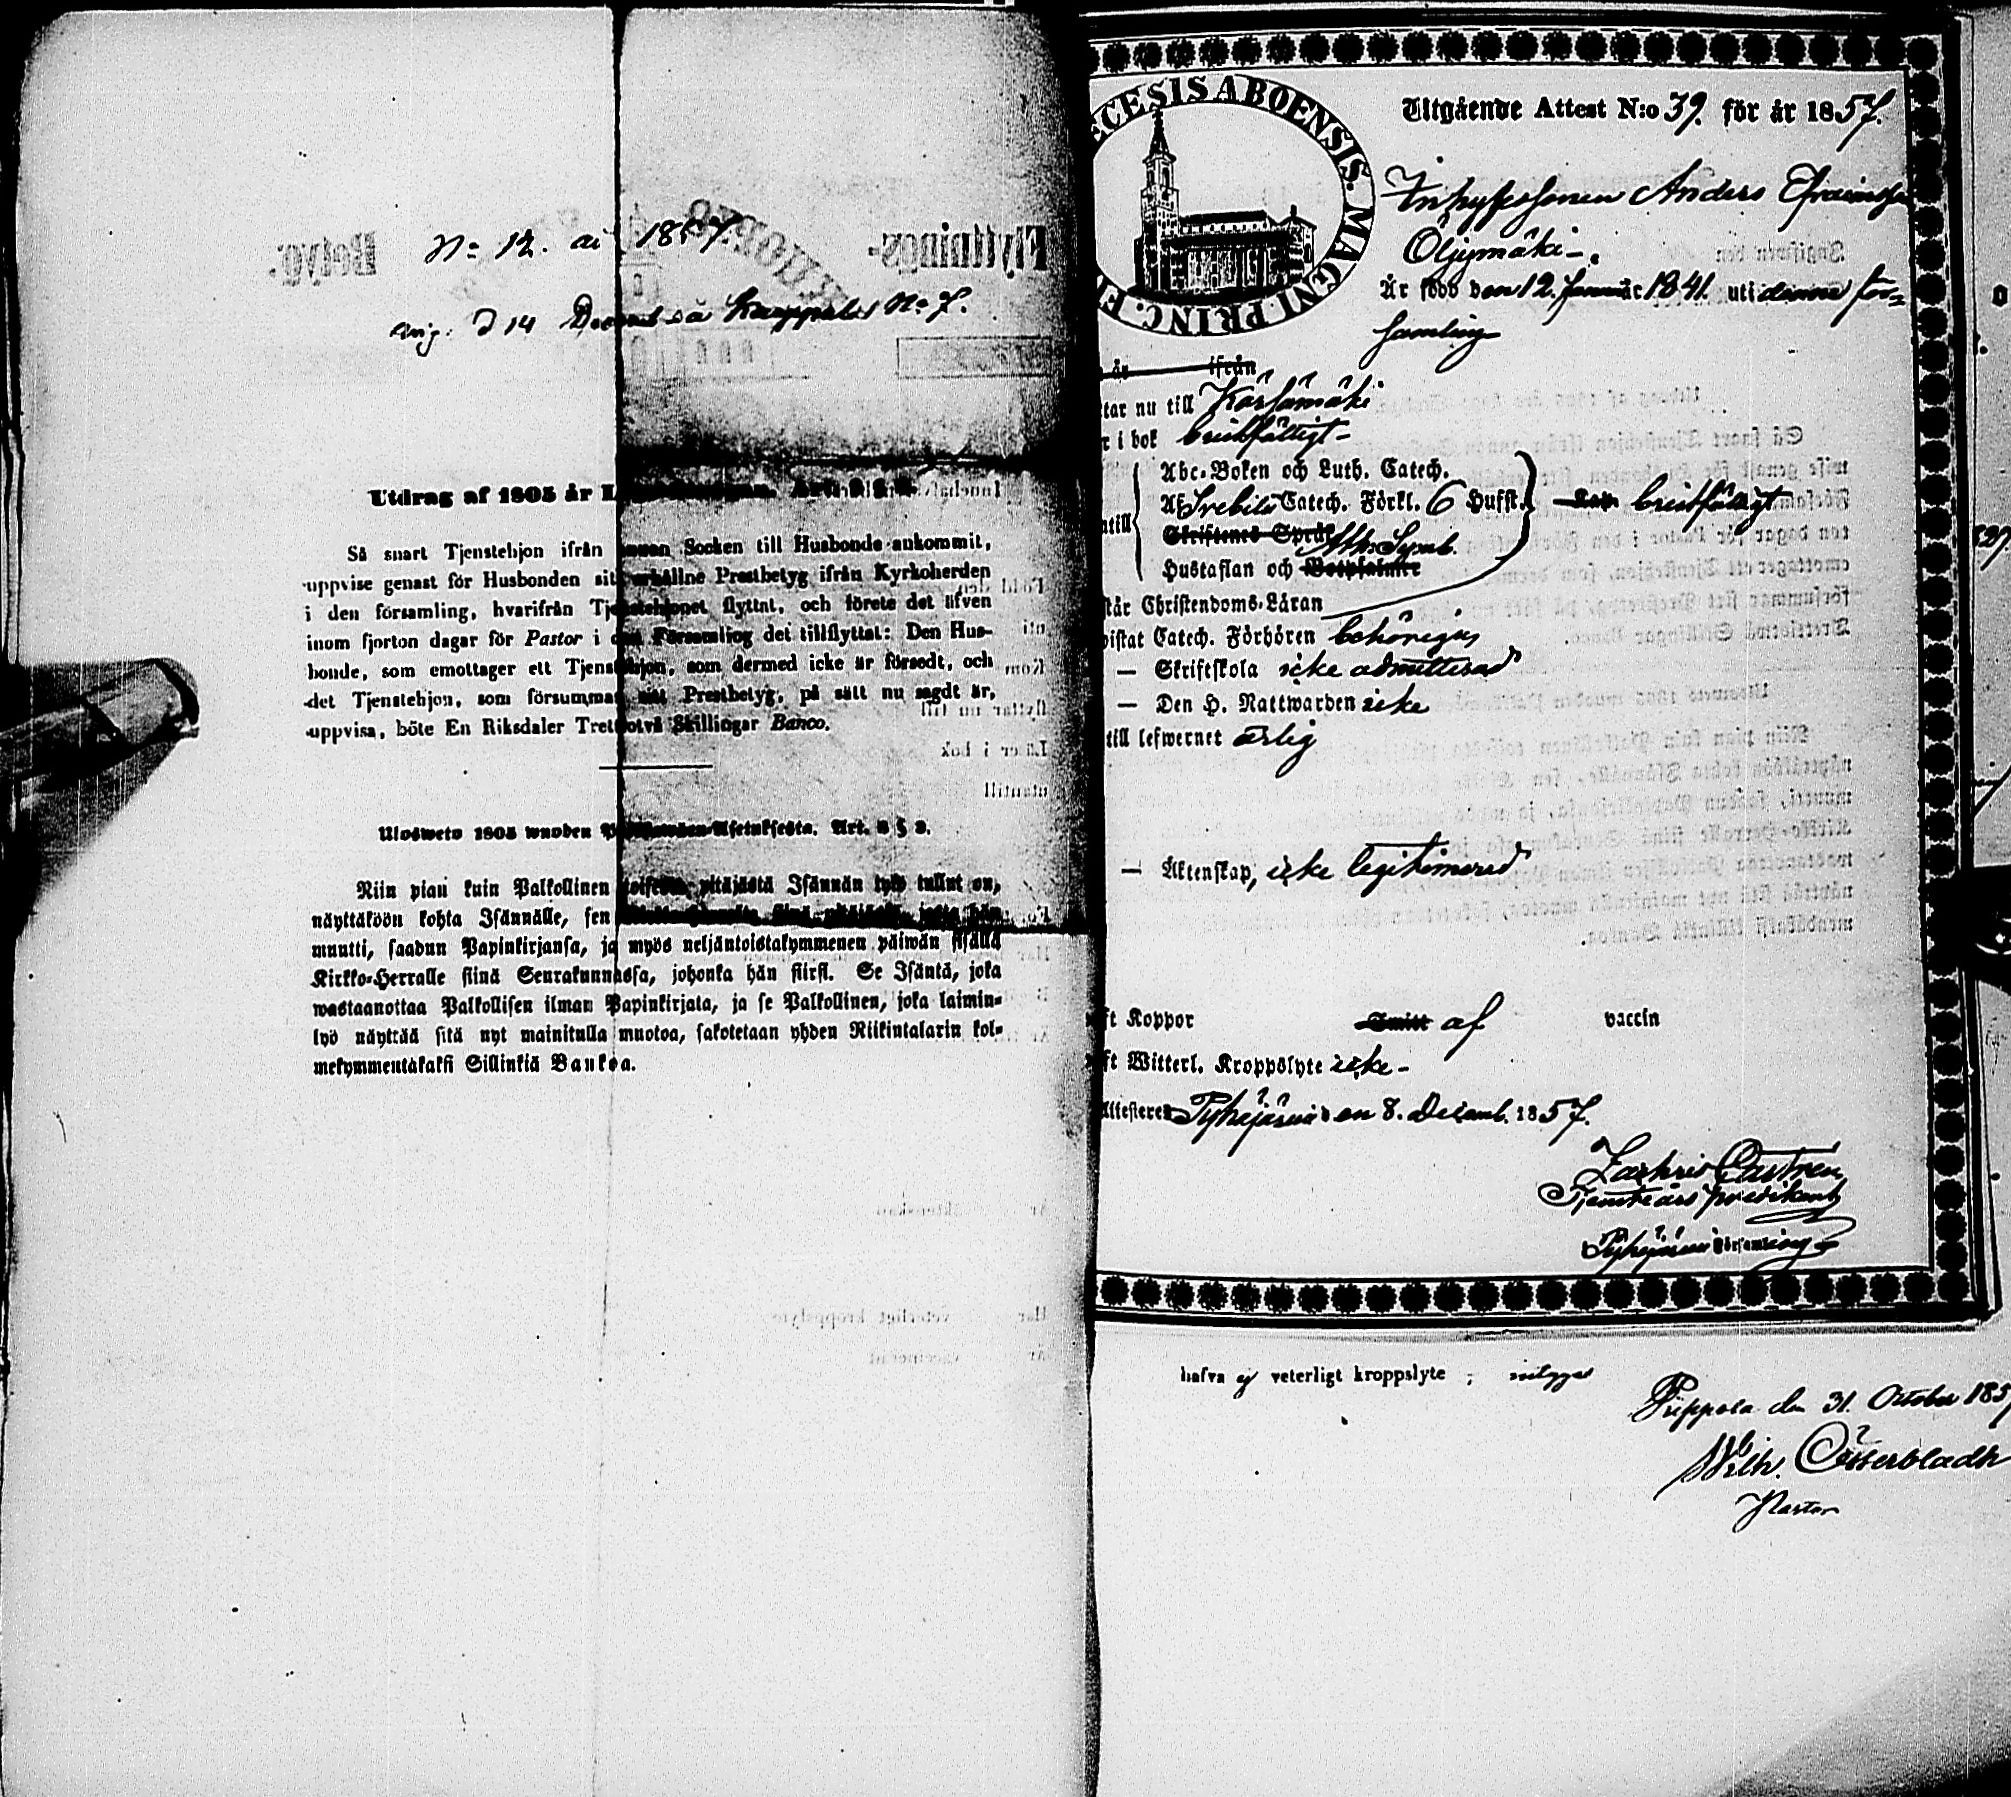 No 12. ai 1857
ing. d 14 Decemb så Kappelet No 7.
Utdrag af 1805 år
Så snart Tjenstehjon ifrån annan Socken till Husbonde ankommit,
uppvise genast för Husbonden sitt erhållne Prestbetyg ifrån Kyrkoherden
i den församling, hvarifrån Tjenstehjonet flyttat, och förete det äfven
inom fjorton dagar för Pastor i den Församling det tillflyttat: Den Hus-
bonde, som emottager ett Tjenstehjon, som dermed icke är försedt, och
det Tjenstehjon, som försummat sitt Prestbetyg, på sätt nu sagdt är,
uppvisa, böte En Riksdaler Trettiotvå Skillingar Banco.
Ulosweto 1805 wuoden Palkowäen-Asetuksesta. Art. 3 § 9.
Niin pian kuin Palkollinen toisesta pitäjästä Isännän työ tullut on,
näyttäköön kohta Isännälle, sen
muutti, saadun Papinkirjansa, ja myös neljäntoistakymmenen päiwän sisällä
Kirkko-Herralle siinä Seurakunnassa, johonka hän siirsi. Se Isäntä, joka
wastaanottaa Palkollisen ilman Papinkirjata, ja se Palkollinen, joka laimin-
lyö näyttää sitä nyt mainitulla muotoa, sakotetaan yhden Riikintalarin kol-
mekymmentäkaksi Sillinkiä Bankoa.
ECESIS ABOENSIS. MAGNI. PRINC. FI
Utgående Attest N:o 39. för år 1857.
Inhysessonen Anders Efraimsson
Öljymäki.
Är född den 12. Januar 1841. uti denna för=
samling
är ifrån
tar nu till Kärsämäki
r i bok bristfälligt
Abc-Boken och Luth. Catech.
Af Svebilii Catech. Förkl. 6 Hufst. bristfälligt
ntill
Skriftenes Språk Ath. Symb.
Hustaflan och Botpsalmer
står Christendoms-Läran
wistat Catech. Förhören behörigen
— Skriftskola icke admitterad
— Den H. Nattwarden icke
till lefwernet ärlig
— Äktenskap, icke legitimerad
ft Koppor Smitt af vaccin
ft Witterl. Kroppslyte icke
Attesteres Pyhäjärvi den 8. Decemb. 1857.
Zachris Castrén
Tjenstears predikant
Pyhäjärvi Församling
hafva ej veterligt kroppslyte ; intygas
Pippola den 31. October 185
Wilh. Österbladh
Pastor